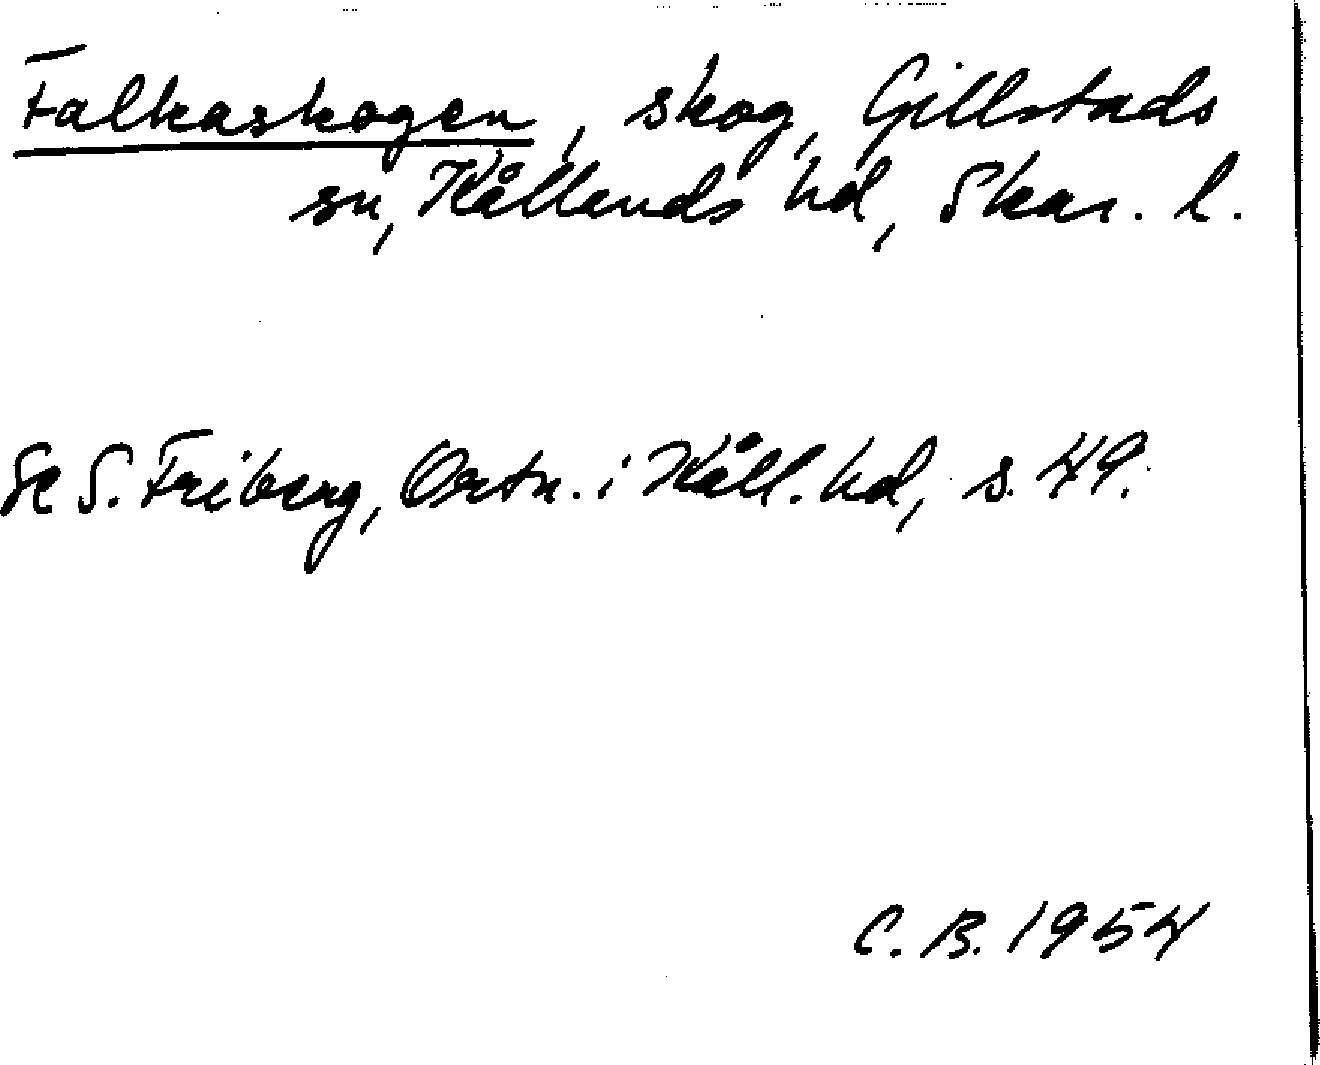 Falkaskogen, skog, Gillstads
sn, Kållands hd, Skar. l.
Se S. Friberg, Ortn. i Kåll. hd, s. 49.
C. B. 1954